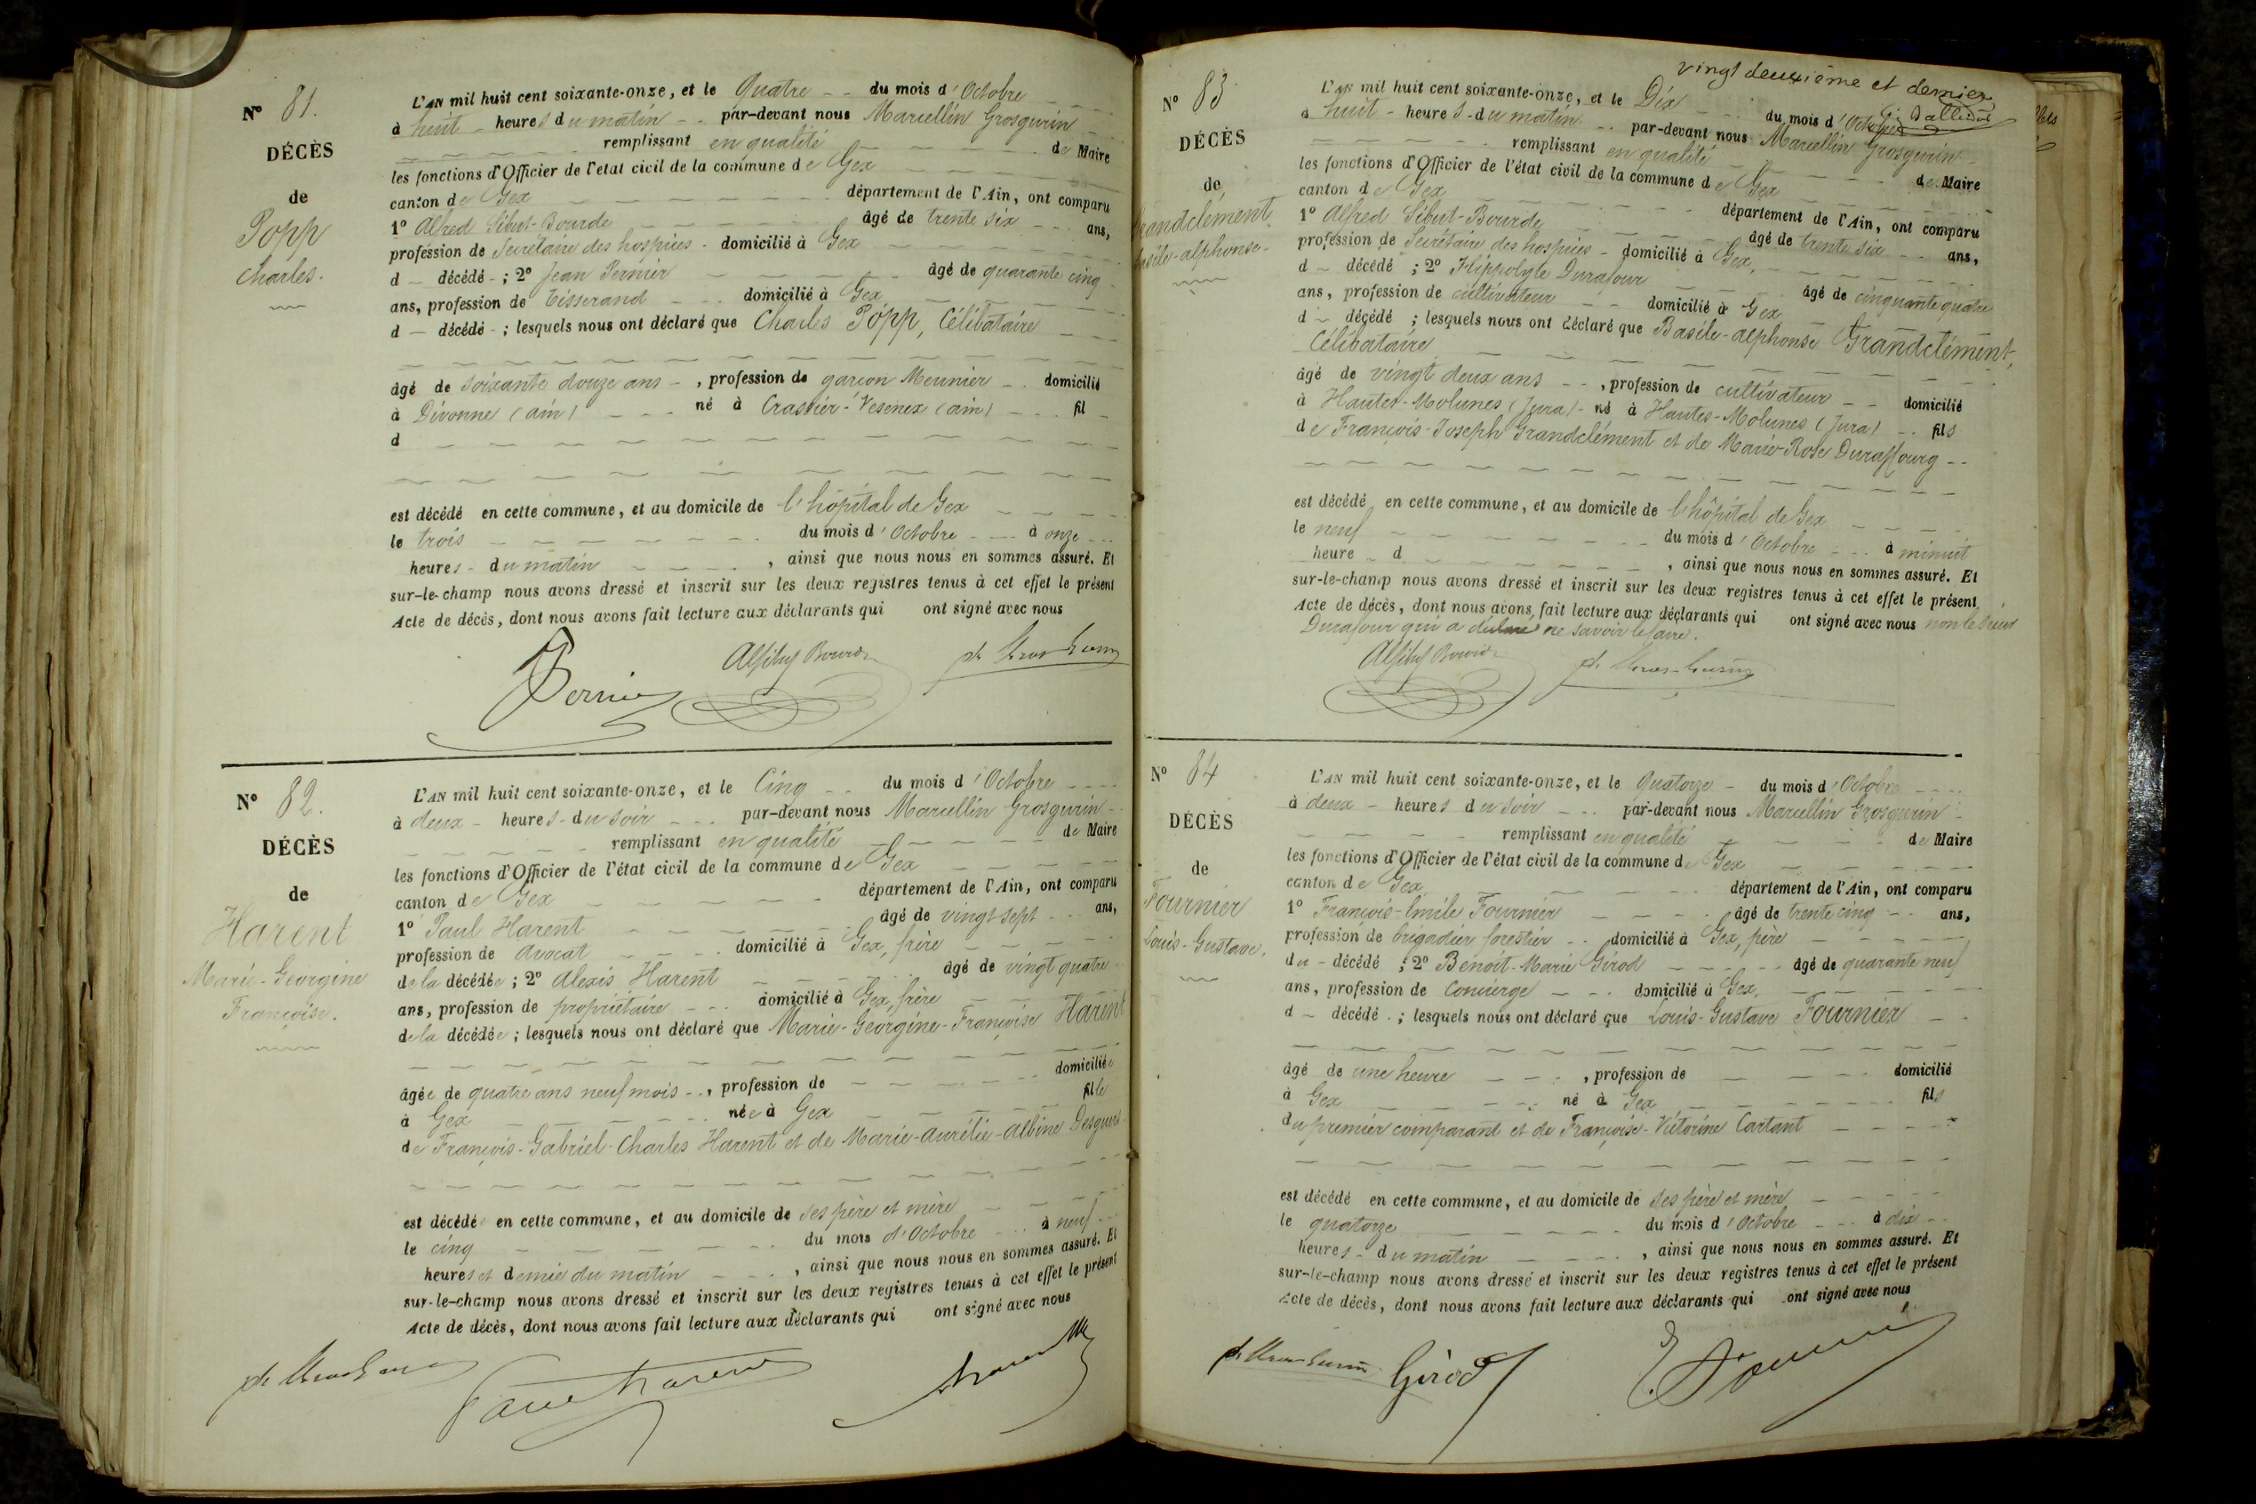 N° 81.
DÉCÈS
de
Popp
Charles.
L'AN mil huit cent soixante-onze, et le Quatre du mois d'Octobre
à huit heures du matin par-devant nous Marcellin Grosgurin
remplissant en qualité de Maire
les fonctions d'Officier de l'état civil de la commune de Gex
canton de Gex département de l'Ain, ont comparu
1° Alfred Sibut-Bourde âgé de trente six ans,
profession de Secrétaire des hospices domicilié à Gex
d décédé ; 2° Jean Pernier âgé de quarante cinq
ans, profession de tisserand domicilié à Gex
d décédé ; lesquels nous ont déclaré que Charles Popp, Célibataire
âgé de soixante douze ans, profession de garçon Meunier domicilié
à Divonne (ain) né à Crassier-Vesenex (ain) fil
d
est décédé en cette commune, et au domicile de l'hôpital de Gex
le trois du mois d'Octobre à onze
heures du matin, ainsi que nous nous en sommes assuré. Et
sur-le-champ nous avons dressé et inscrit sur les deux registres tenus à cet effet le présent
Acte de décès, dont nous avons fait lecture aux déclarants qui ont signé avec nous
N° 82.
DÉCÈS
de
Harent
Marie-Georgine
Françoise.
L'AN mil huit cent soixante-onze, et le Cinq du mois d'Octobre
à deux heures du soir par-devant nous Marcellin Grosgurin
remplissant en qualité de Maire
les fonctions d'Officier de l'état civil de la commune de Gex
canton de Gex département de l'Ain, ont comparu
1° Paul Harent âgé de vingt sept ans,
profession de Avocat domicilié à Gex, frère
de la décédée ; 2° Alexis Harent âgé de vingt quatre
ans, profession de propriétaire domicilié à Gex, frère
de la décédée ; lesquels nous ont déclaré que Marie-Georgine-Françoise Harent
âgée de quatre ans neuf mois, profession de domiciliée
à Gex née à Gex fille
de François-Gabriel-Charles Harent et de Marie-Aurélie-Albine
est décédée en cette commune, et au domicile de ses père et mère
le cinq du mois d'Octobre à neuf
heures et demie du matin, ainsi que nous nous en sommes assuré. Et
sur-le-champ nous avons dressé et inscrit sur les deux registres tenus à cet effet le présent
Acte de décès, dont nous avons fait lecture aux déclarants qui ont signé avec nous
Paul Harent
vingt deuxième et dernier
N° 83.
DÉCÈS
de
Grandclément
Basile-alphonse
L'AN mil huit cent soixante-onze, et le Dix du mois d'Octobre
à huit heures du matin par-devant nous Marcellin Grosgurin
remplissant en qualité de Maire
les fonctions d'Officier de l'état civil de la commune de Gex
canton de Gex département de l'Ain, ont comparu
1° Alfred Sibut-Bourde âgé de trente six ans,
profession de Secrétaire des hospices domicilié à Gex,
d décédé ; 2° Hippolyte Durafour âgé de cinquante quatre
ans, profession de cultivateur domicilié à Gex
d décédé ; lesquels nous ont déclaré que Basile-alphonse Grandclément,
Célibataire
âgé de vingt deux ans, profession de cultivateur domicilié
à Hautes-Molunes (Jura) né à Hautes-Molunes (Jura) fils
de François-Joseph Grandclément et de Marie-Rose Duraffourg
est décédé en cette commune, et au domicile de l'hôpital de Gex
le neuf du mois d'Octobre à minuit
heure d, ainsi que nous nous en sommes assuré. Et
sur-le-champ nous avons dressé et inscrit sur les deux registres tenus à cet effet le présent
Acte de décès, dont nous avons fait lecture aux déclarants qui ont signé avec nous non le sieur
Durafour qui a déclaré ne savoir le faire.
N° 84
DÉCÈS
de
Fournier
Louis-Gustave.
L'AN mil huit cent soixante-onze, et le Quatorze du mois d'Octobre
à deux heures du soir par-devant nous Marcellin Grosgurin
remplissant en qualité de Maire
les fonctions d'Officier de l'état civil de la commune de Gex
canton de Gex département de l'Ain, ont comparu
1° François-Emile Fournier âgé de trente cinq ans,
profession de brigadier forestier domicilié à Gex, père
du décédé ; 2° Benoit-Marie Girod âgé de quarante neuf
ans, profession de Concierge domicilié à Gex,
d décédé ; lesquels nous ont déclaré que Louis-Gustave Fournier
âgé de une heure, profession de domicilié
à Gex né à Gex fils
du premier comparant et de Françoise-Victorine Cartant
est décédé en cette commune, et au domicile de ses père et mère
le quatorze du mois d'Octobre à dix
heures du matin, ainsi que nous nous en sommes assuré. Et
sur-le-champ nous avons dressé et inscrit sur les deux registres tenus à cet effet le présent
Acte de décès, dont nous avons fait lecture aux déclarants qui ont signé avec nous
Girod